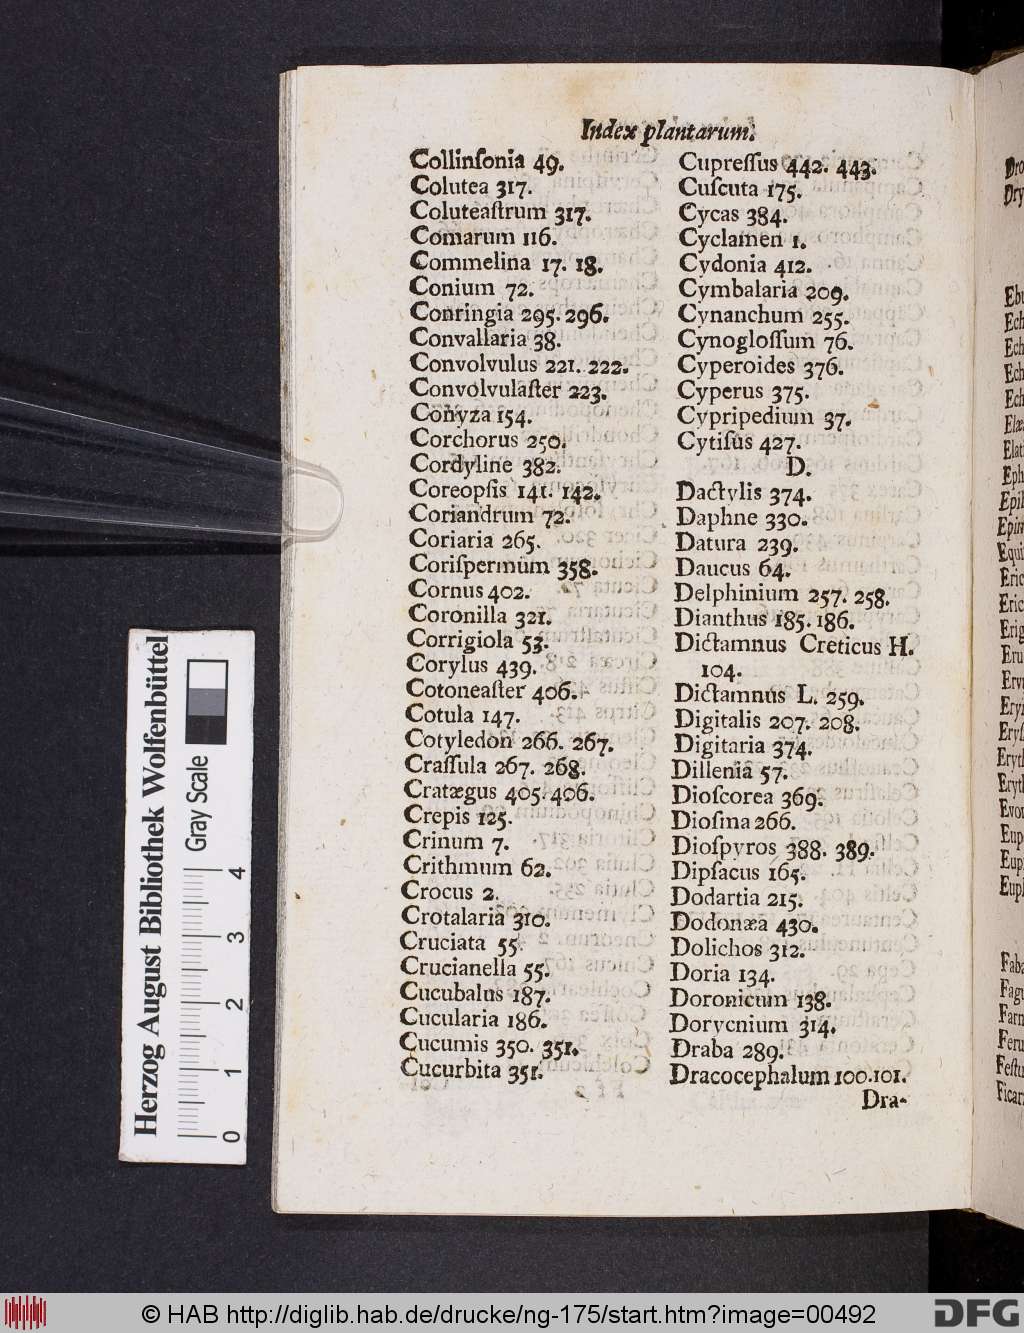 Index plantarum.
Collinſonia 49.
Colutea 317.
Coluteaſtrum 317.
Comarum 116.
Commelina 17. 18.
Conium 72.
Conringia 295. 296.
Convallaria 38.
Convolvulus 221. 222.
Convolvulaſter 223.
Conyza 154.
Corchorus 250.
Cordyline 382.
Coreopſis 141. 142.
Coriandrum 72.
Coriaria 265.
Coriſpermum 358.
Cornus 402.
Coronilla 321.
Corrigiola 53.
Corylus 439.
Cotoneaſter 406.
Cotula 147.
Cotyledon 266. 267.
Craſſula 267. 268.
Cratægus 405. 406.
Crepis 125.
Crinum 7.
Crithmum 62.
Crocus 2.
Crotalaria 310.
Cruciata 55.
Crucianella 55.
Cucubalus 187.
Cucularia 186.
Cucumis 350. 351.
Cucurbita 351.
Cupreſſus 442. 443.
Cuſcuta 175.
Cycas 384.
Cyclamen 1.
Cydonia 412.
Cymbalaria 209.
Cynanchum 255.
Cynogloſſum 76.
Cyperoides 376.
Cyperus 375.
Cypripedium 37.
Cytiſus 427.
D.
Dactylis 374.
Daphne 330.
Datura 239.
Daucus 64.
Delphinium 257. 258.
Dianthus 185. 186.
Dictamnus Creticus H.
104.
Dictamnus L. 259.
Digitalis 207. 208.
Digitaria 374.
Dillenia 57.
Dioſcorea 369.
Dioſma 266.
Dioſpyros 388. 389.
Dipſacus 165.
Dodartia 215.
Dodonæa 430.
Dolichos 312.
Doria 134.
Doronicum 138.
Dorycnium 314.
Draba 289.
Dracocephalum 100. 101.
Dra-
Herzog August Bibliothek Wolfenbüttel
Gray Scale
0 1 2 3 4
© HAB http://diglib.hab.de/drucke/ng-175/start.htm?image=00492
DFG